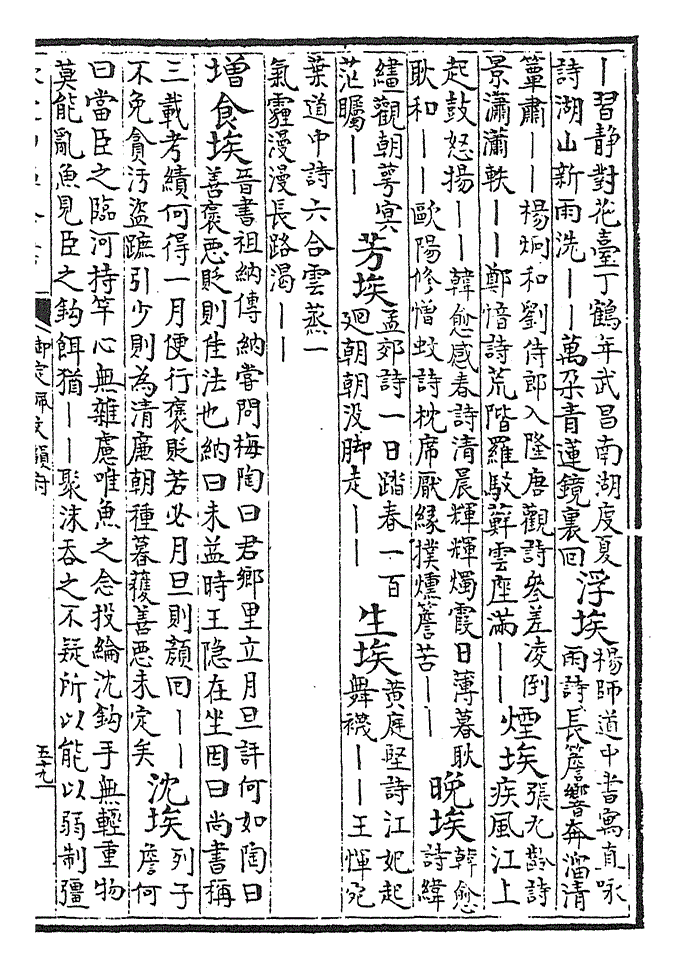 丨習静對花臺丁鶴年武昌南湖度夏
詩湖山新雨洗丨丨萬朶青蓮鏡裏回
浮埃
楊師道中書寓直咏
雨詩長簷響奔溜清
簟肅丨丨楊炯和劉侍郎入隆唐觀詩參差凌倒
景瀟瀟軼丨丨鄭愔詩荒階羅駁蘚雲座滿丨丨
煙埃
張九齡詩
疾風江上
起鼓怒揚丨丨韓愈感春詩清晨輝輝燭霞日薄暮耿
耿和丨丨歐陽修憎蚊詩枕席厭緣撲燻簷苦丨丨
晚埃
韓愈
詩緯
繣觀朝蕚冥
茫矚丨丨
芳埃
孟郊詩一日踏春一百
廻朝朝没脚走丨丨
生埃
黄庭堅詩江妃起
舞襪丨丨王惲宛
葉道中詩六合雲蒸一
氣霾漫漫長路渴丨丨
增食埃
晉書祖納傳納嘗問梅陶曰君鄉里立月旦評何如陶曰
善褒惡貶則佳法也納曰未益時王隐在坐因曰尚書稱
三載考績何得一月便行褒貶若必月旦則顔回丨丨
不免貪汚盜蹠引少則為清廉朝種暮穫善惡未定矣
沈埃
列子
詹何
曰當臣之臨河持竿心無雜慮唯魚之念投綸沈鈎手無輕重物
莫能亂魚見臣之鈎餌猶丨丨聚沫吞之不疑所以能以弱制彊
御定佩文韻府
五十九